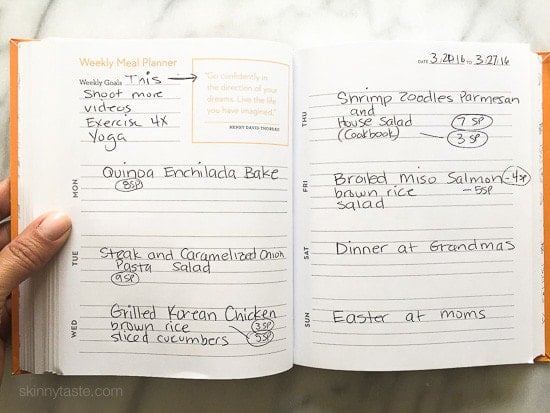 Weekly Meal Planner
Weekly Goals This →
Shoot more
videos
Exercise 4x
Yoga
"Go confidently in
the direction of your
dreams. Live the life
you have imagined."
HENRY DAVID THOREAU
MON
Quinoa Enchilada Bake
8SP
TUE
Steak and Caramelized Onion
Pasta Salad
9SP
WED
Grilled Korean Chicken
brown rice 3SP
sliced cucumbers 5SP
DATE 3.20.16 TO 3.27.16
THU
Shrimp Zoodles Parmesan
and
House Salad 7 SP
(Cookbook) 3 SP
FRI
Broiled Miso Salmon - 4SP
brown rice - 5SP
salad
SAT
Dinner at Grandmas
SUN
Easter at moms
skinnytaste.com